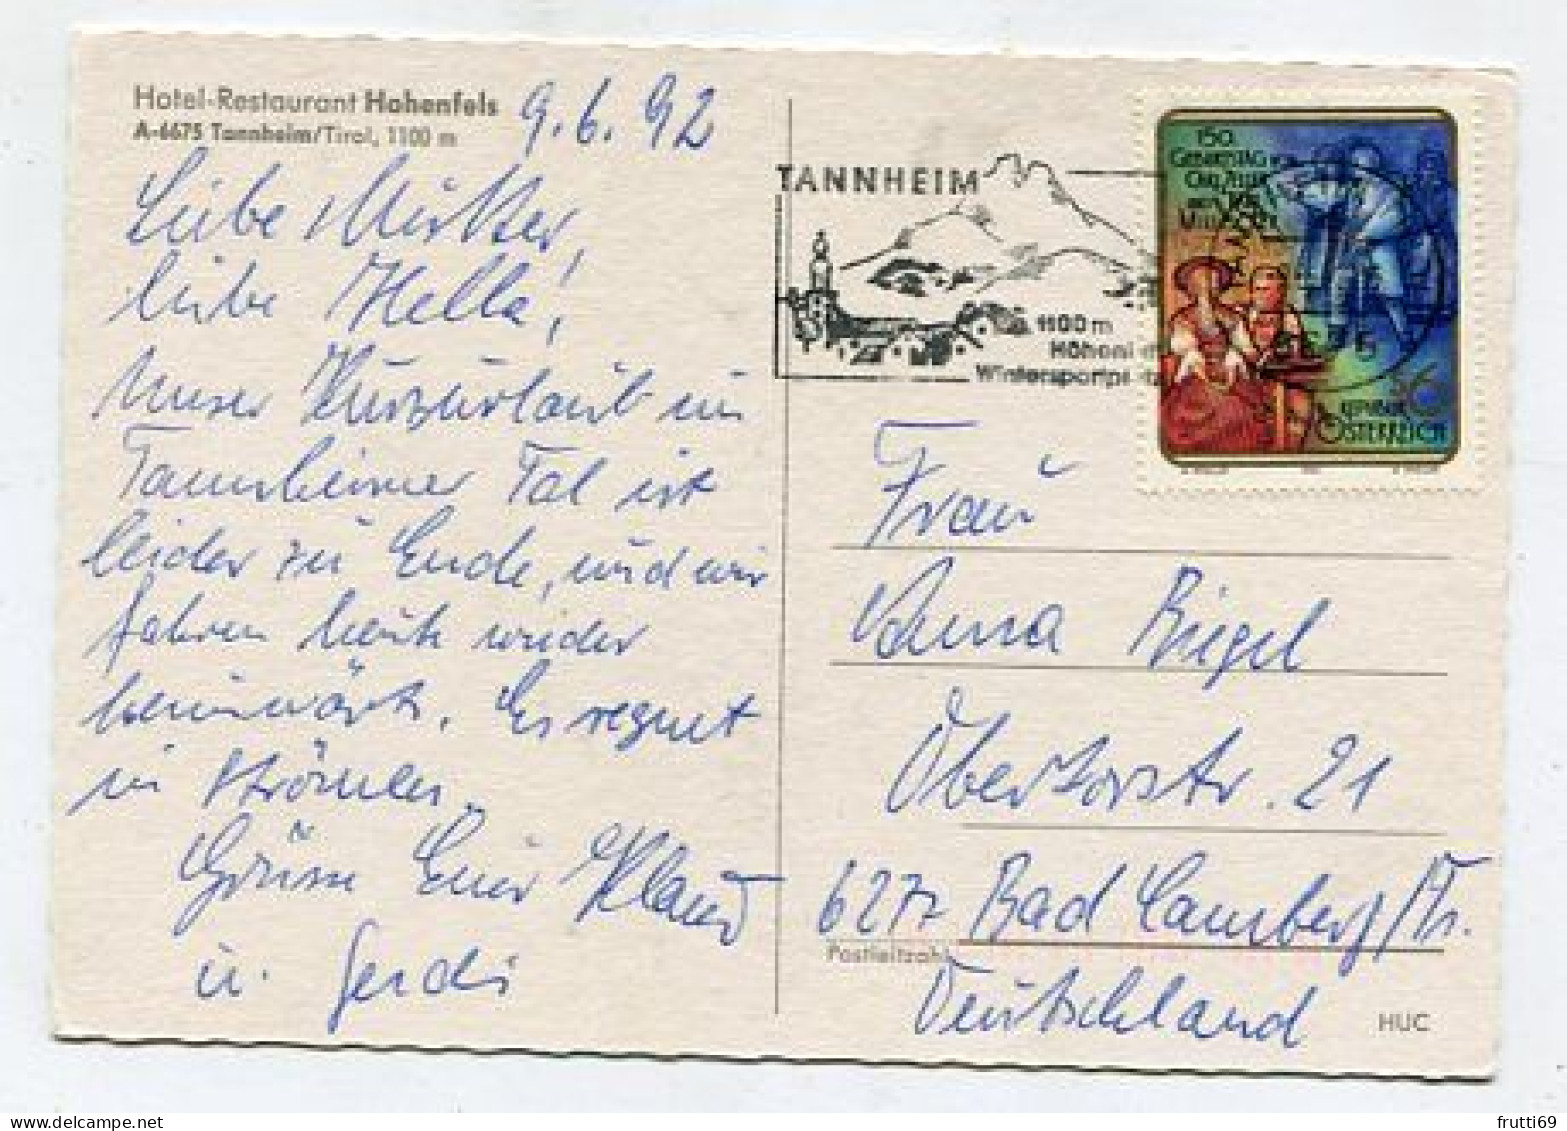 Hotel-Restaurant Hohenfels
A-6675 Tannheim/Tirol, 1100 m
9.6.92
Liebe Mutter,
liebe Hella!
Unser Kurzurlaub im
Tannheimer Tal ist
leider zu Ende, und wir
fahren heute wieder
heimwärts. Es regnet
in Strömen.
Grüsse Euer Klaus
u. Gerdi
TANNHEIM
1100 m
Höhenl
Wintersportpl
150.
GEBURTSTAG VON
CARL ZELLER
6675
6
REPUBLIK
ÖSTERREICH
Frau
Anna Biegel
Obertorstr. 21
6277 Bad Camberg/Ts.
Postleitzahl
Deutschland
HUC
frutti69